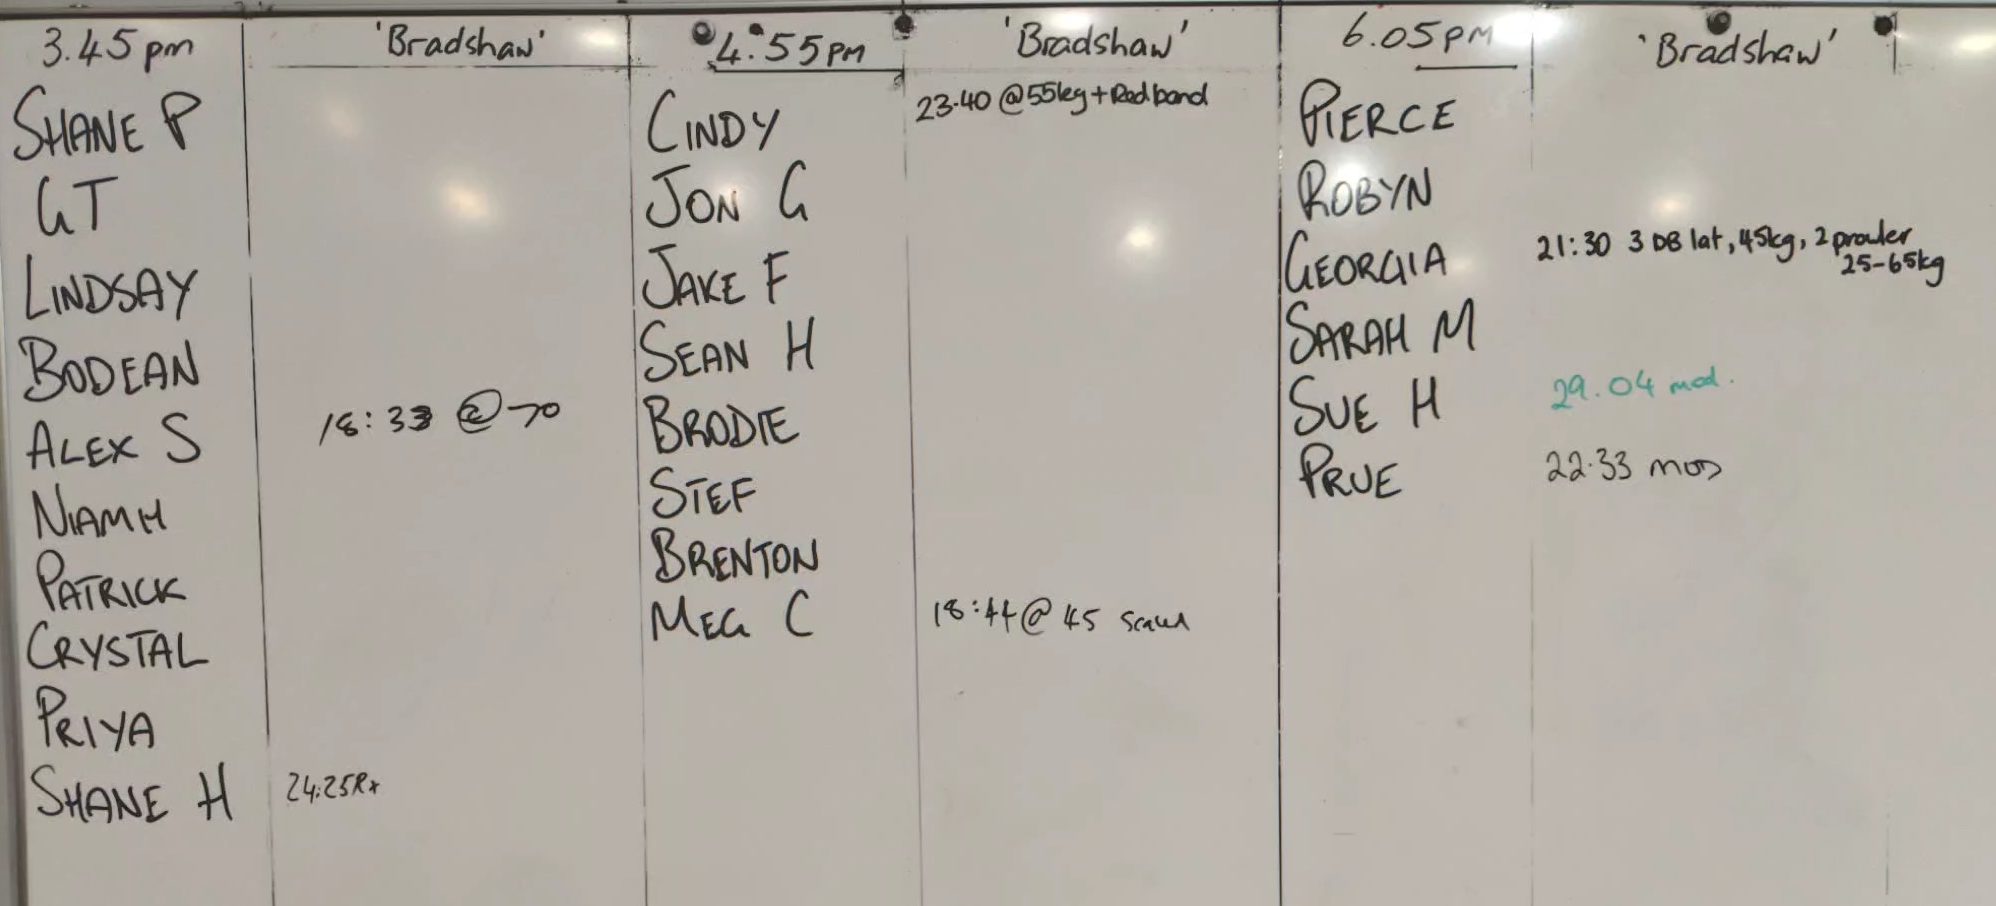 3.45pm 'Bradshaw'
SHANE P
GT
LINDSAY
BODEAN
ALEX S 18:33 @70
NIAMH
PATRICK
CRYSTAL
PRIYA
SHANE H 24:25Rx
4:55PM 'Bradshaw'
CINDY 23.40 @55kg + Red band
JON G
JAKE F
SEAN H
BRODIE
STEF
BRENTON
MEG C 18:44 @ 45
6.05PM 'Bradshaw'
PIERCE
ROBYN
GEORGIA 21:30 3 DB lat, 45kg, 2 prowler
25-65kg
SARAH M
SUE H 29.04 mod.
PRUE 22.33 MOD